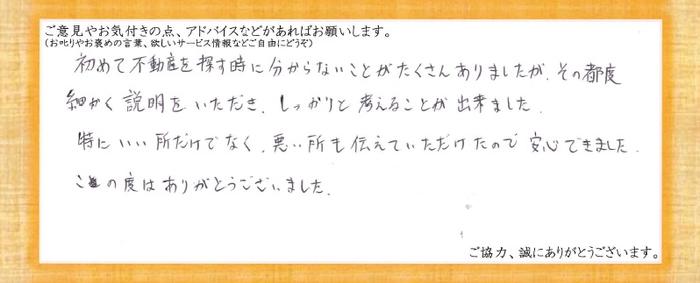 ご意見やお気付きの点、アドバイスなどがあればお願いします。
(お叱りやお褒めの言葉、欲しいサービス情報などご自由にどうぞ)
初めて不動産を探す時に分からないことがたくさんありましたが、その都度
細かく説明をいただき、しっかりと考えることが出来ました。
特にいい所だけでなく、悪い所も伝えていただけたので安心できました。
この度はありがとうございました。
ご協力、誠にありがとうございます。